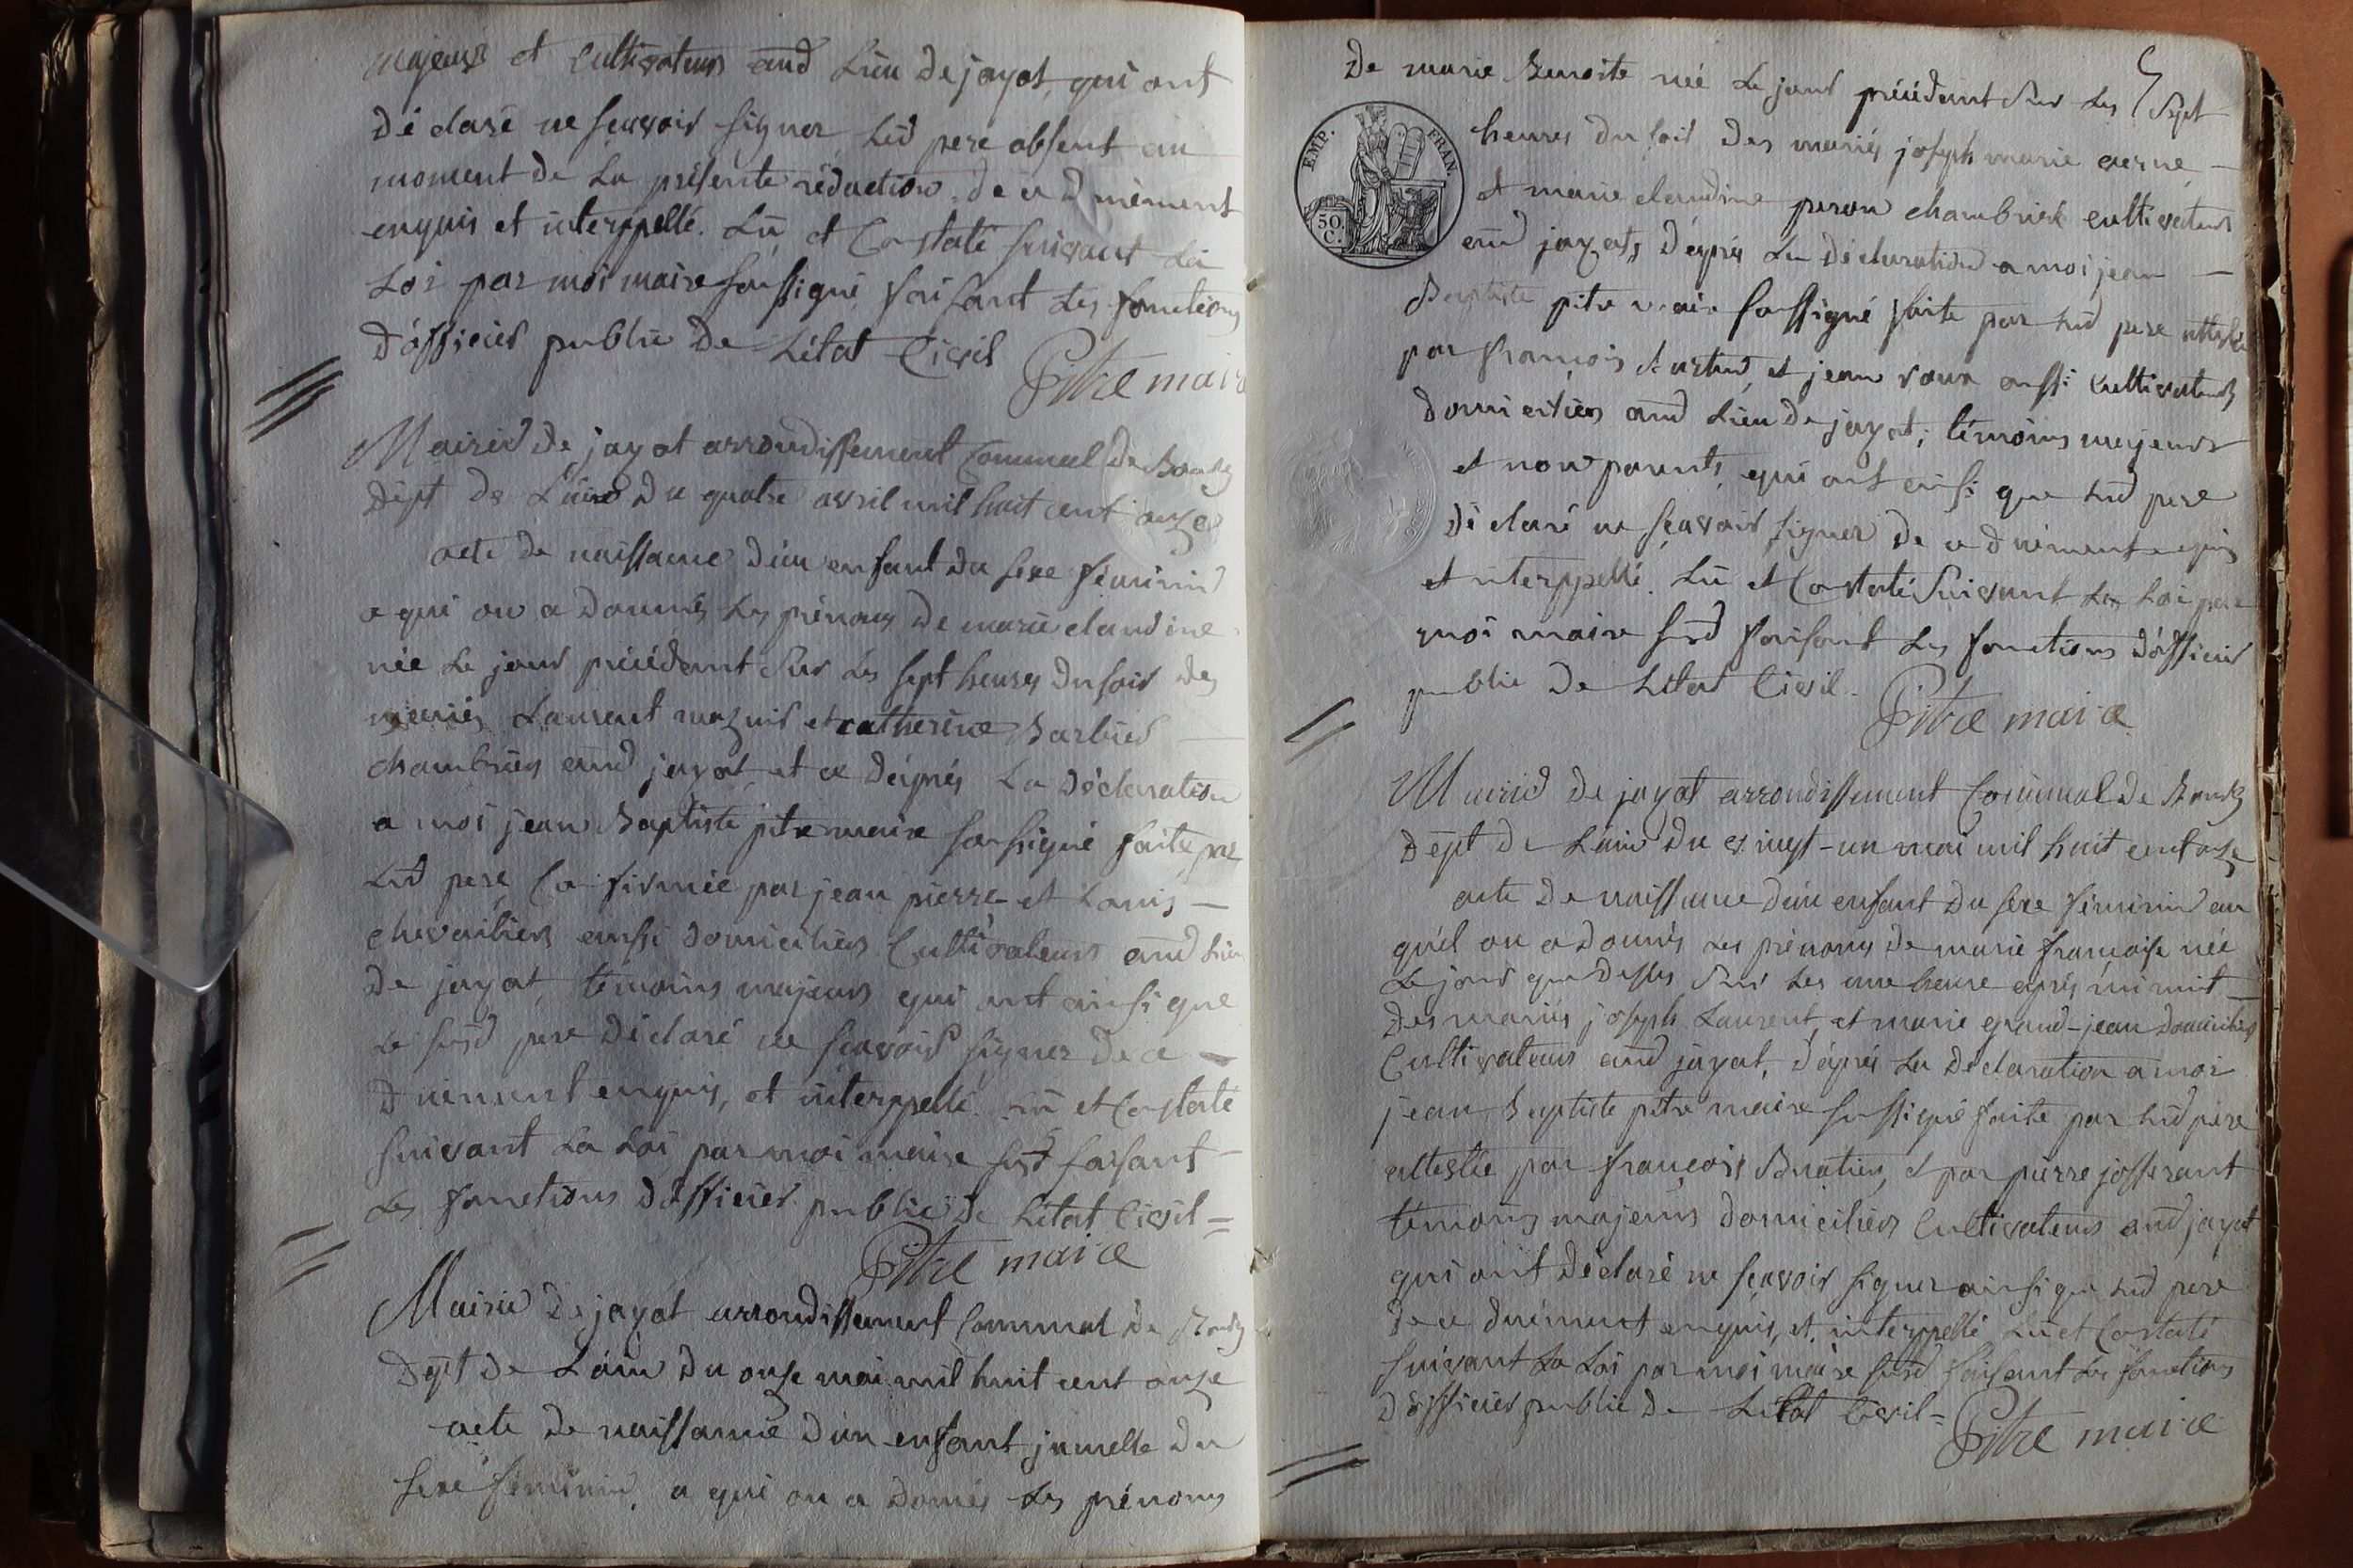 majeurs et cultivateurs aud Lieu de jayat, qui ont
déclaré ne sçavoir signer led pere absent au
moment de la présente rédaction. de ce duement
enquis et interppellé. Lû et Constaté suivant La
Loi par moi maire soussigné faisant Les fonctions
d'officier public de L'état Civil
Pitre maire
Mairie de jayat arrondissement Communal de Bourg
dépt de L'ain du quatre avril mil huit cent onze
acte de naissance d'un enfant du sexe féminin
a qui on a donnés Les prénoms de marie claudine
née Le jour précédent sur Les sept heures du soir des
mariés Laurent mazuir et catherine Barbier
chambriers aud jayat et ce d'après La déclaration
a moi jean Baptiste pitre maire soussigné faite par
Led pere Confirmée par jean pierre et Louis
chevailiers aussi domiciliés Cultivateurs aud Lieu
de jayat, témoins majeurs qui ont ainsi que
Le susd pere déclaré ne sçavoir signer de ce
duement enquis, et interppellé. Lû et Constaté
suivant La Loi par moi maire susd faisant
Les fonctions d'officier public de L'état Civil =
Pitre maire
Mairie de jayat arrondissement Communal de Bourg
dépt de L'ain du onze mai mil huit cent onze
acte de naissance d'un enfant jumelle du
sexe féminin, a qui on a donnés Les prénoms
5
De marie Benoite née Le jour précédent sur Les sept
EMP. FRAN.
50. C.
heures du soir des mariés joseph marie
et marie claudine peron chambrier cultivateurs
aud jayat, d'après La déclaration a moi jean
Baptiste pitre maire soussigné faite par Led pere attestée
par françois et jean roux aussi cultivateurs
domiciliés aud Lieu de jayat, témoins majeurs
et non parents, qui ont ainsi que Led pere
déclaré ne sçavoir signer de ce duement enquis
et interppellé. Lû et Constaté suivant La Loi par
moi maire susd faisant Les fonctions d'officier
public de L'état Civil.
Pitre maire
Mairie de jayat arrondissement Communal de Bourg
dépt de L'ain du vingt-un mai mil huit cent onze
acte de naissance d'un enfant du sexe féminin au
quel on a donnés Les prénoms de marie françoise née
Le jour que dessus sur Les une heure après minuit
des mariés joseph Laurent, et marie grand-jean domiciliés
Cultivateurs aud jayat, d'après La déclaration a moi
jean Baptiste pitre maire soussigné faite par Led père
attestée par françois et par pierre josserant
témoins majeurs domiciliés Cultivateurs aud jayat
qui ont déclaré ne sçavoir signer ainsi que Led pere
de ce duement enquis, et interppellé Lû et Constaté
suivant La Loi par moi maire susd faisant Les fonctions
d'officier public de L'état Civil =
Pitre maire